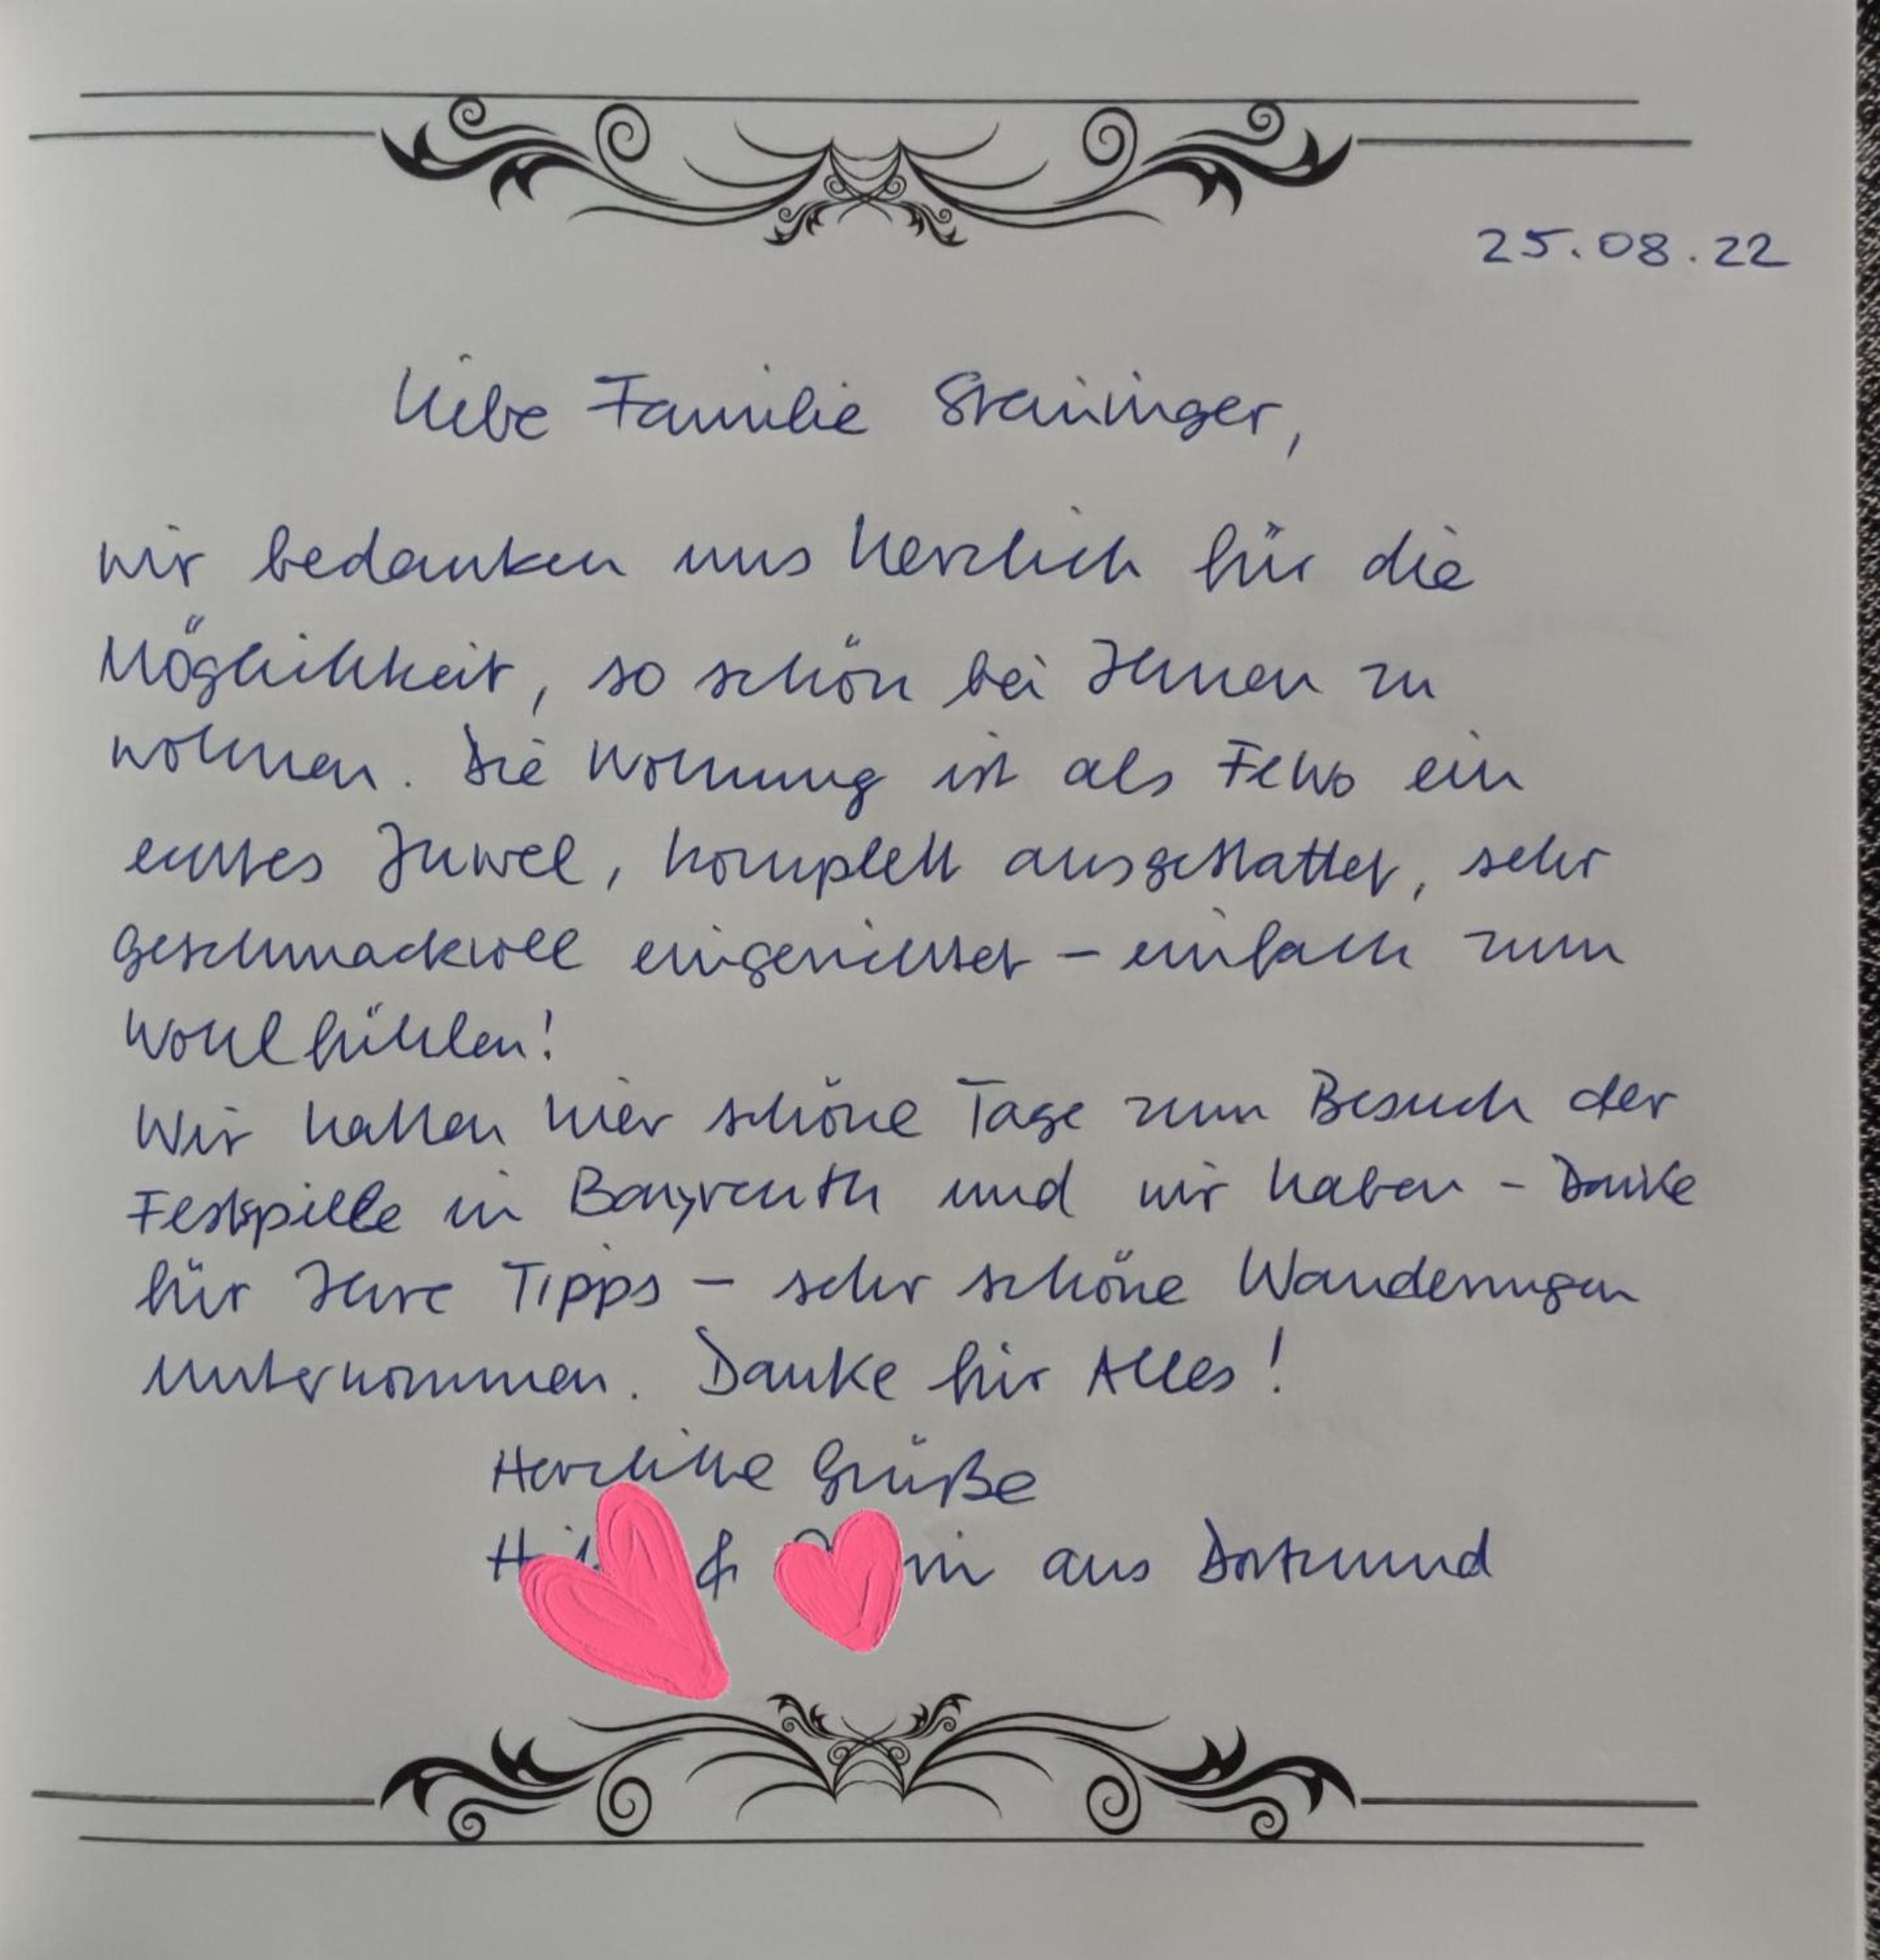 25.08.22
Liebe Familie Strayninger,
wir bedanken uns herzlich für die
Möglichkeit, so schön bei Ihnen zu
wohnen. Die Wohnung ist als FeWo ein
echtes Juwel, komplett ausgestattet, sehr
geschmackvoll eingerichtet – einfach zum
Wohlfühlen!
Wir hatten hier schöne Tage zum Besuch der
Festspiele in Bayreuth und wir haben – Danke
für Ihre Tipps – sehr schöne Wanderungen
unternommen. Danke für Alles!
Herzliche Grüße
& aus Dortmund